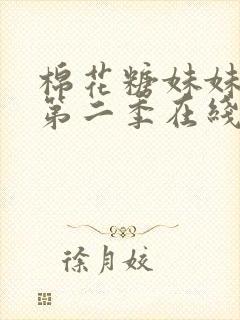 棉花糖妹妹
第二季在线
徐月姣